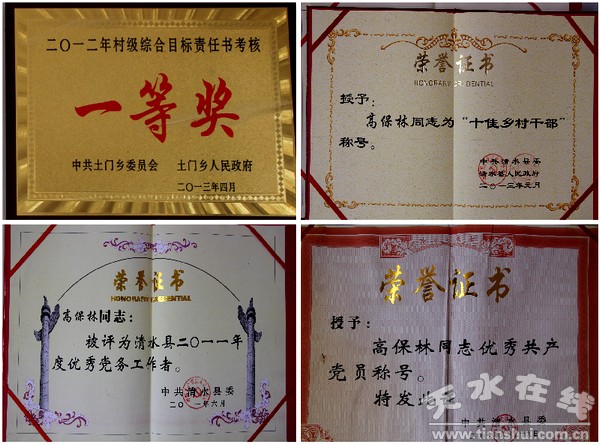 二〇一二年村级综合目标责任书考核
一等奖
中共土门乡委员会 土门乡人民政府
二〇一三年四月
荣誉证书
HONORARY CREDENTIAL
授予：
高保林同志为“十佳乡村干部”
称号。
中共清水县委
清水县人民政府
二〇一三年元月
荣誉证书
HONORARY CREDENTIAL
高保林同志：
被评为清水县二〇一一年
度优秀党务工作者。
中共清水县委
二〇一一年六月
荣誉证书
授予：
高保林同志优秀共产
党员称号。
特发此
中共清水县委
天水在线
www.tianshui.com.cn